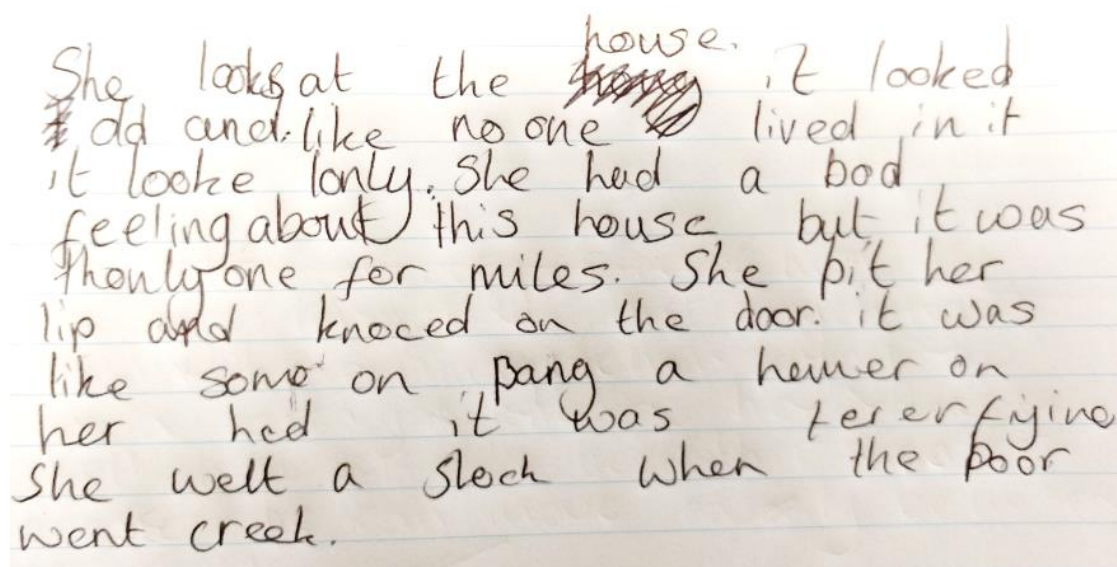 house.
She looks at the it looked
old and like no one lived in it
it looke lonly. She had a bad
feeling about this house but it was
thonly one for miles. She pit her
lip and knoced on the door. it was
like some on pang a hemer on
her hed it was tererfying
She welt a sloch when the poor
went creek.